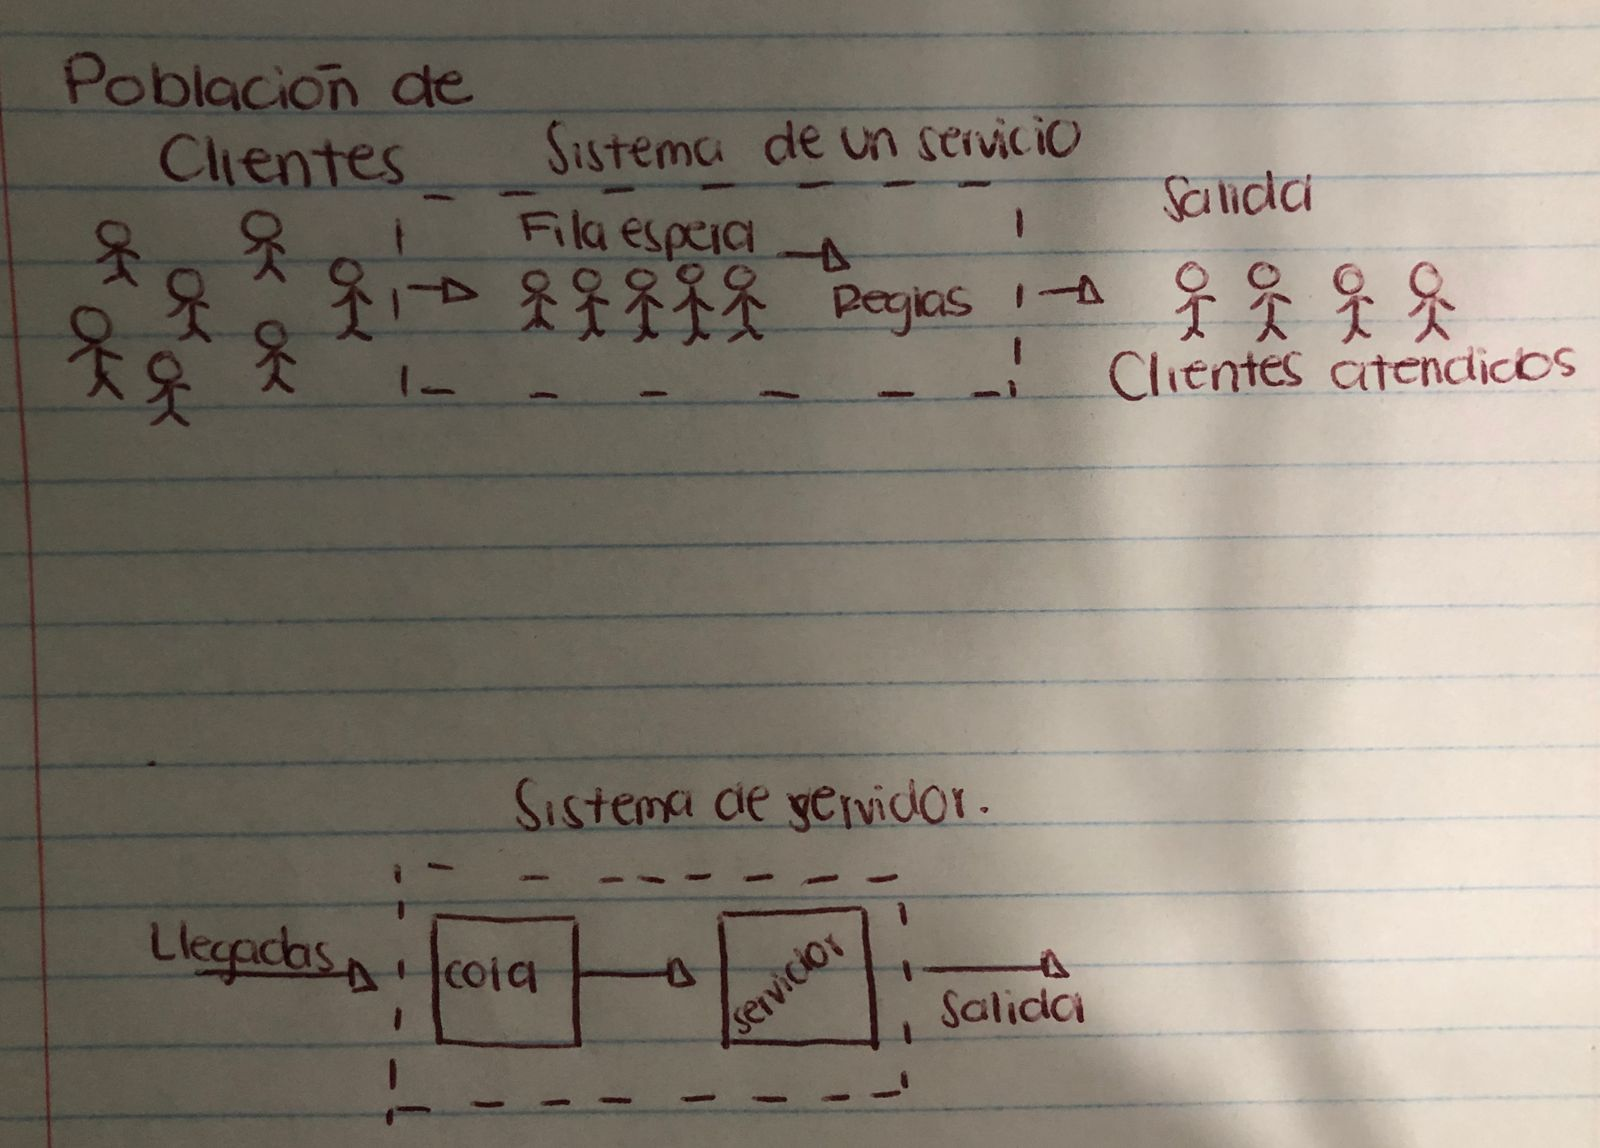 Población de
Clientes
Sistema de un servicio
Fila espera
Reglas
Salida
Clientes atendidos
Sistema de servidor.
Llegadas
cola
servidor
Salida